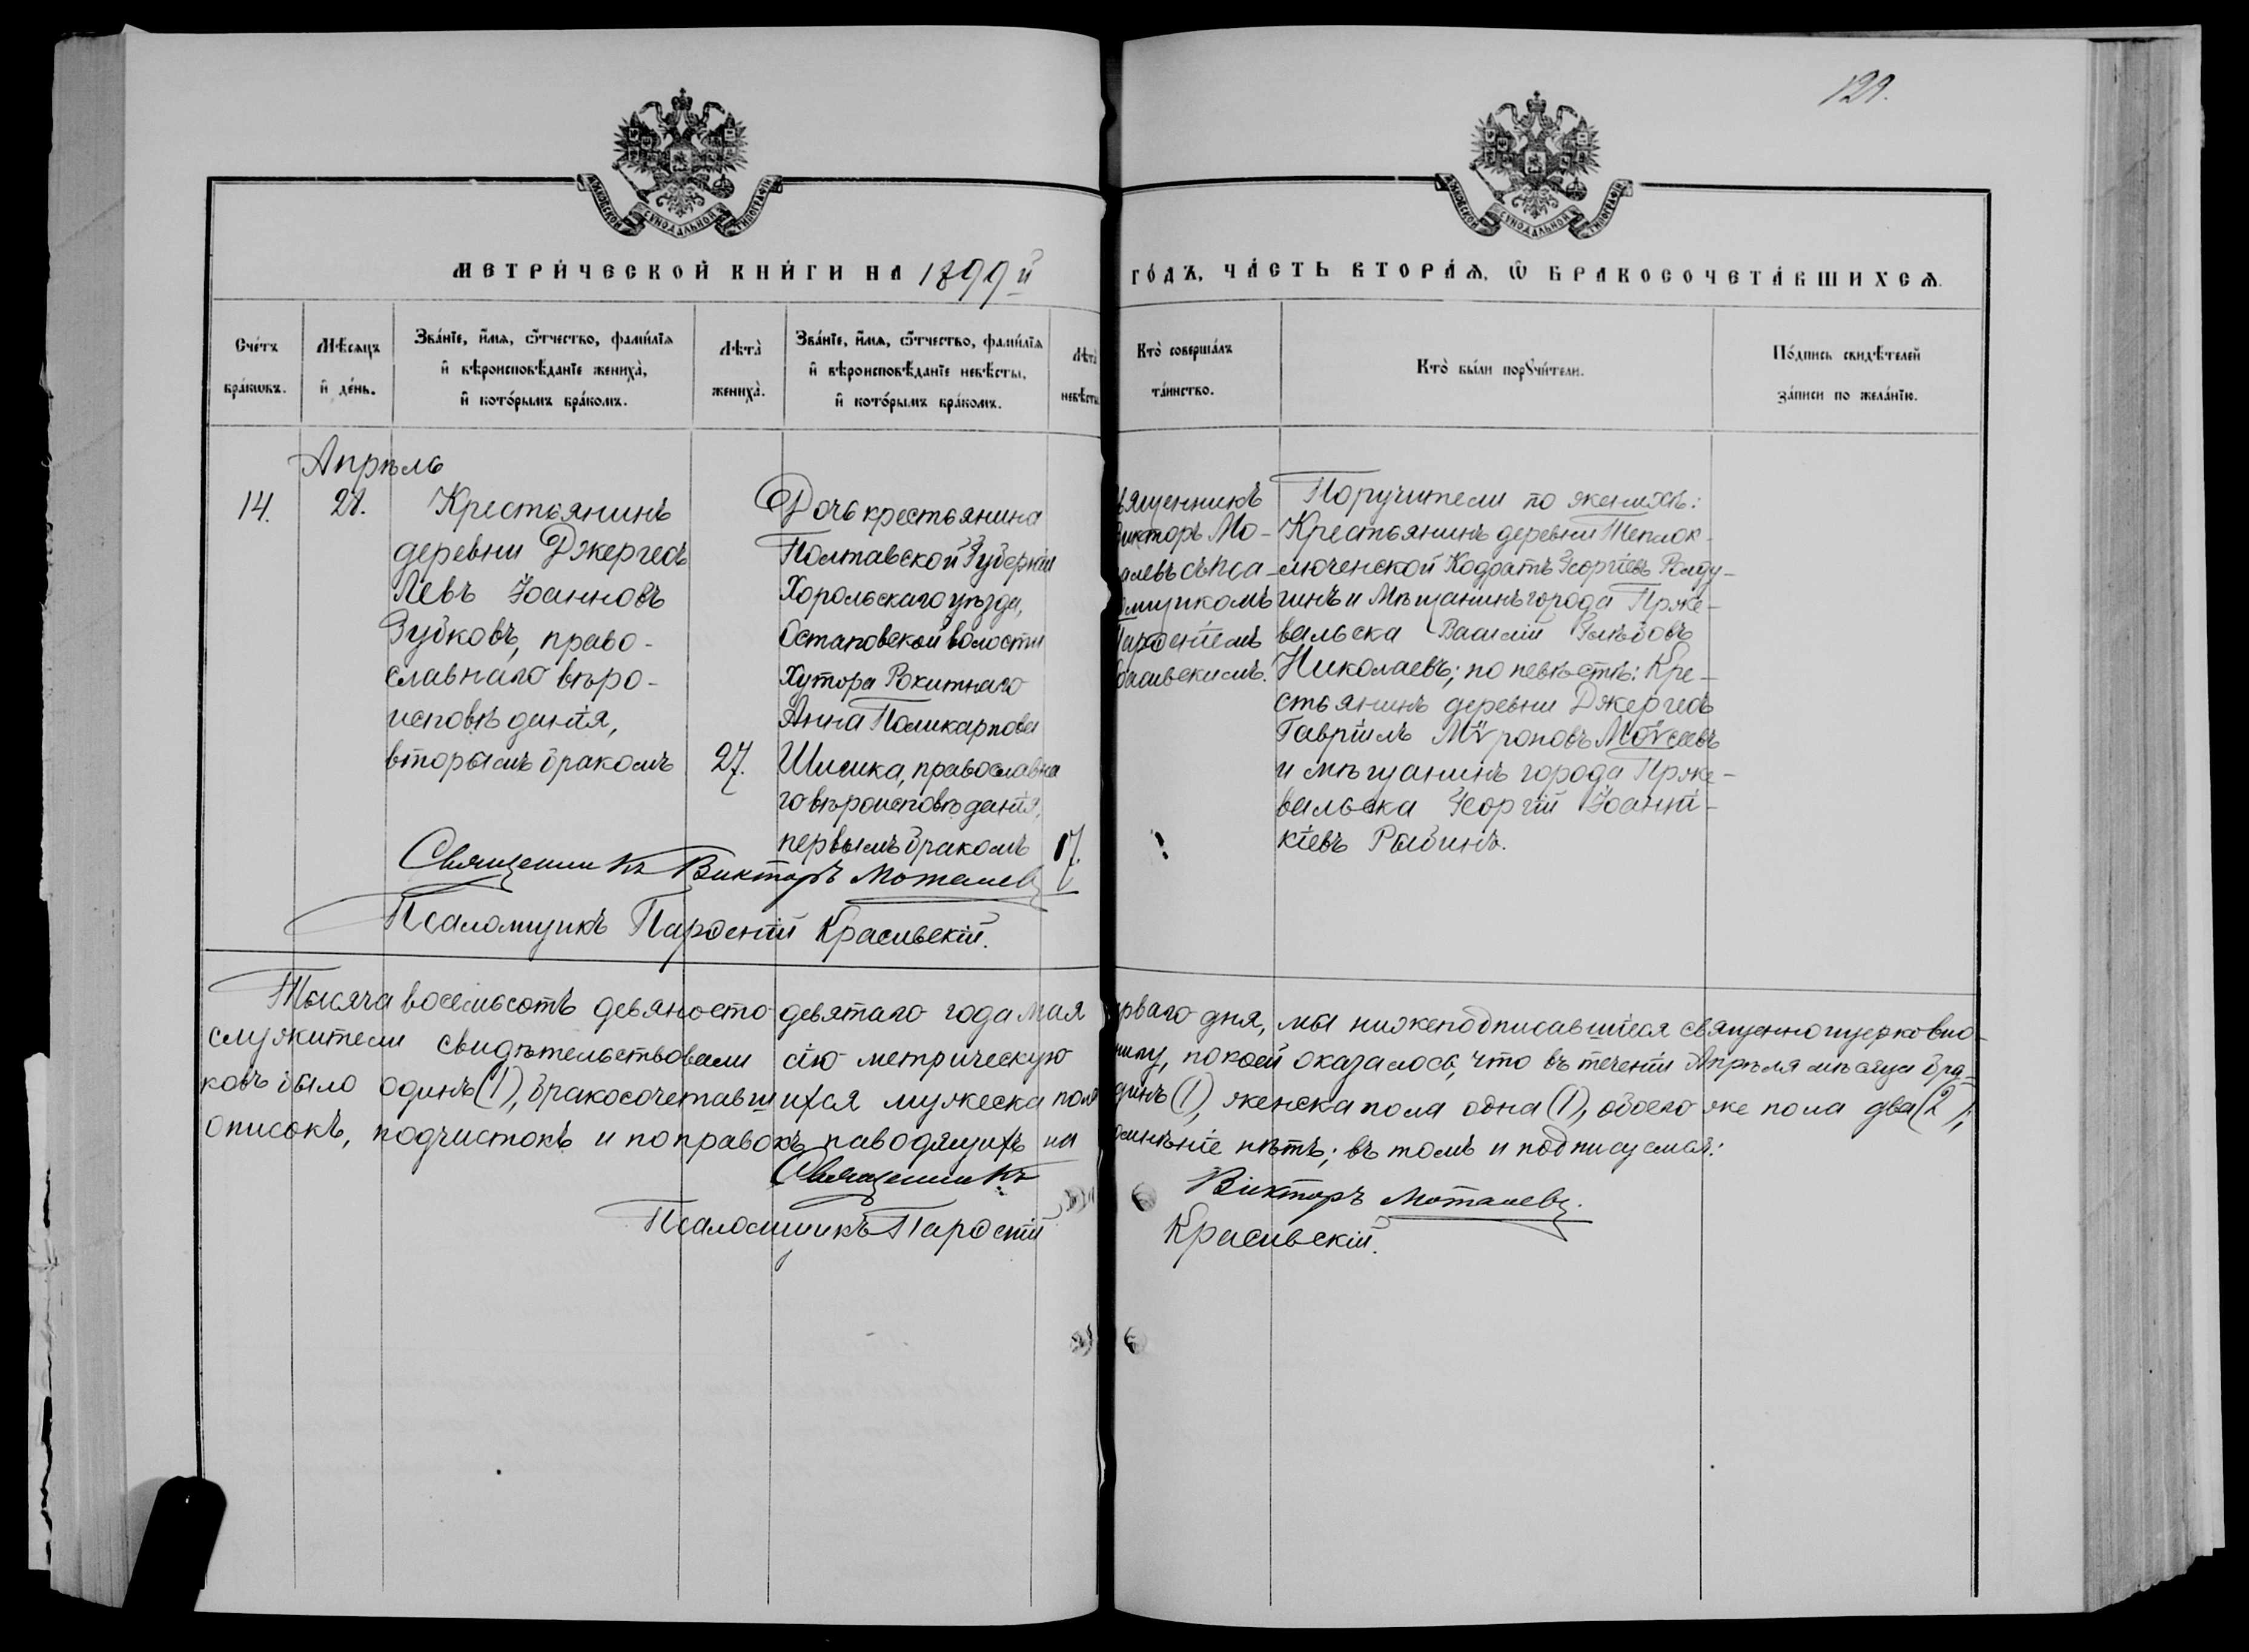 129.
МОСКОВСКОЙ СѴНОДАЛЬНОЙ ТИПОГРАФІИ
МОСКОВСКОЙ СѴНОДАЛЬНОЙ ТИПОГРАФІИ
МЕТРИ́ЧЕСКОЙ КНИ́ГИ НА 1899 й
ГО́ДЪ, ЧА́СТЬ ВТОРА́Ѧ, Ѡ҆ БРАКОСОЧЕТА́ВШИХСѦ.
Сче́тъ
бра́кѡвъ.
Мѣ́сѧцъ
и҆ де́нь.
Зва́нїе, и҆́мѧ, ѻ҆́тчество, фами́лїѧ
и҆ вѣроисповѣ́данїе жениха̀,
и҆ кото́рымъ бра́комъ.
Лѣта̀
жениха̀.
Зва́нїе, и҆́мѧ, ѻ҆́тчество, фами́лїѧ
и҆ вѣроисповѣ́данїе невѣ́сты,
и҆ кото́рымъ бра́комъ.
Лѣта̀
невѣ́сты
Кто̀ соверша́лъ
та́инство.
Кто̀ бы́ли порꙋчи́тели.
По́дпись свидѣ́телей
за́писи по жела́нїю.
Апрѣль
14.
28.
Крестьянинъ
деревни Джергесъ
Левъ Іоанновъ
Зубковъ, право-
славнаго вѣро-
исповѣданія,
вторымъ бракомъ
27.
Дочь крестьянина
Полтавской Губерніи
Хорольскаго уѣзда,
Остаповской волости
Хутора Рокитнаго
Анна Поликарпова
Шишка, православна
го вѣроисповѣданія,
первымъ бракомъ
17.
вященникъ
Викторъ Мо-
алевъ съ Пса-
омщикомъ
Парѳеніемъ
расивскимъ.
Поручители по женихѣ:
Крестьянинъ деревни Теплок-
люченской Кодратъ Георгіевъ Ролду-
гинъ и Мѣщанинъ города Прже-
вальска Василій Глѣбовъ
Николаевъ; по невѣстѣ: Кре-
стьянинъ деревни Джергесъ
Гавріилъ Мѵроновъ Моѵсеевъ
и мѣщанинъ города Прже-
вальска Георгій Іоанни-
кіевъ Рыбинъ.
Священникъ Викторъ Моталевъ
Псаломщикъ Парѳеній Красивскій.
Тысяча восемьсотъ девяносто девятаго года мая ерваго дня, мы нижеподписавшіеся священноцерковно-
служители свидѣтельствовали сію метрическую нигу, по коей оказалось, что въ теченіи Апрѣля мѣсяца бра-
ковъ было одинъ (1), бракосочетавшихся мужеска пола динъ (1), женска пола одна (1), обоего же пола два (2);
описокъ, подчистокъ и поправокъ наводящихъ на омнѣніе нѣтъ; въ томъ и подписуемся:
Священникъ Викторъ Моталевъ.
Псаломщикъ Парѳеній Красивскій.